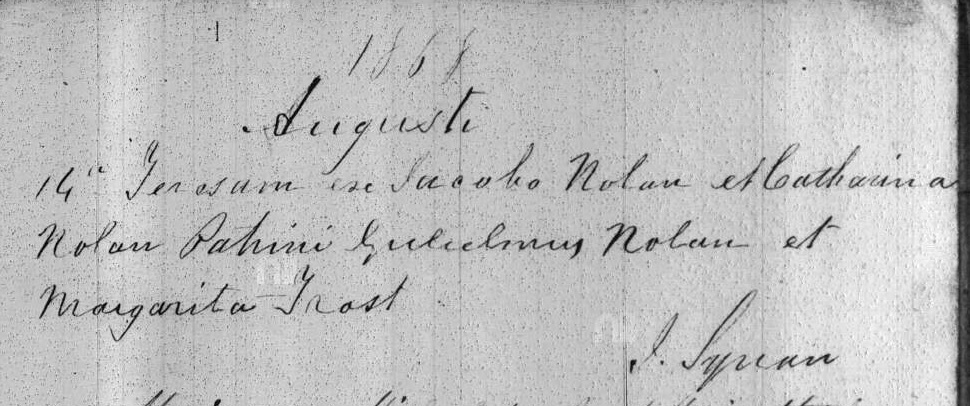 1868
Augusti
14a Teresam ex Jacobo Nolan et Catharina
Nolan Patrini Gulielmus Nolan et
Margarita Frost
J. Synan